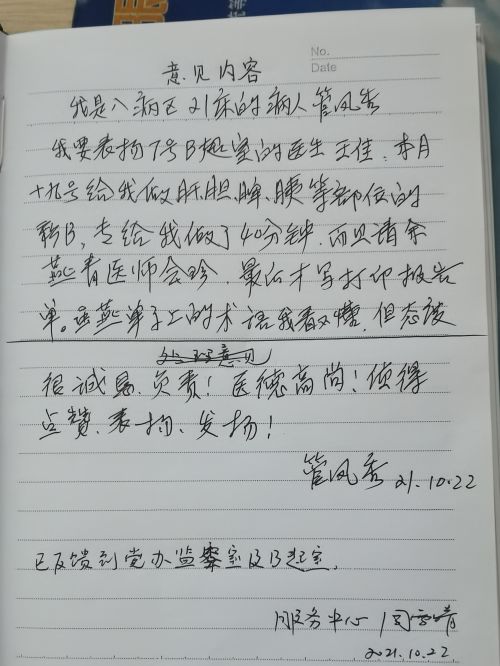 No.
Date
意见内容
我是八病区21床的病人管凤秀
我要表扬7号B超室的医生王佳，本月
十九号给我做肝、胆、脾、胰等部位的
彩B，专给我做了40分钟，而且请余
燕青医师会珍，最后才写打印报告
单。虽然单子上的术语我看不懂，但态度
处理意见
很诚恳、负责！医德高尚！值得
点赞、表扬、发扬！
管凤秀 21.10.22
已反馈到党办监察室及B超室。
服务中心
2021.10.22